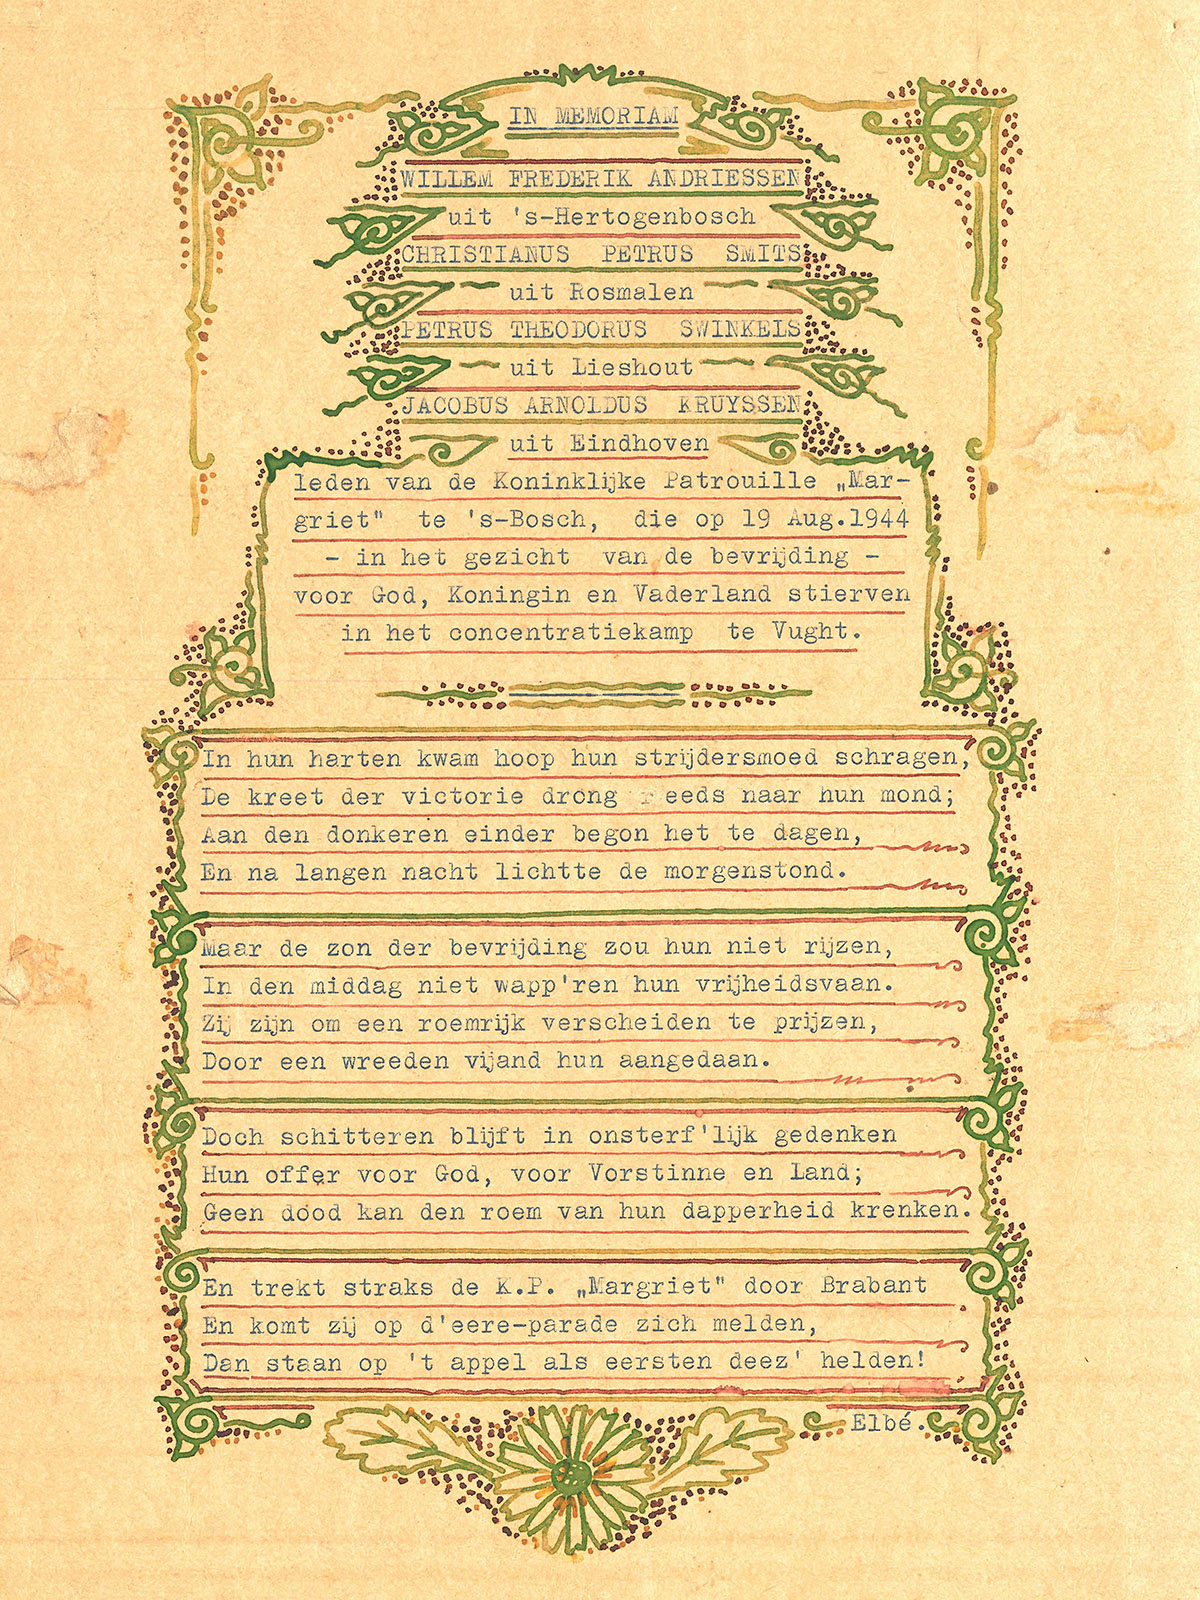 IN MEMORIAM
WILLEM FREDERIK ANDRIESSEN
uit 's-Hertogenbosch
CHRISTIANUS PETRUS SMITS
uit Rosmalen
PETRUS THEODORUS SWINKELS
uit Lieshout
JACOBUS ARNOLDUS KRUYSSEN
uit Eindhoven
leden van de Koninklijke Patrouille „Mar-
griet" te 's-Bosch, die op 19 Aug.1944
- in het gezicht van de bevrijding -
voor God, Koningin en Vaderland stierven
in het concentratiekamp te Vught.
In hun harten kwam hoop hun strijdersmoed schragen,
De kreet der victorie drong reeds naar hun mond;
Aan den donkeren einder begon het te dagen,
En na langen nacht lichtte de morgenstond.
Maar de zon der bevrijding zou hun niet rijzen,
In den middag niet wapp'ren hun vrijheidsvaan.
Zij zijn om een roemrijk verscheiden te prijzen,
Door een wreeden vijand hun aangedaan.
Doch schitteren blijft in onsterf'lijk gedenken
Hun offer voor God, voor Vorstinne en Land;
Geen dood kan den roem van hun dapperheid krenken.
En trekt straks de K.P. „Margriet" door Brabant
En komt zij op d'eere-parade zich melden,
Dan staan op 't appel als eersten deez' helden!
Elbé.